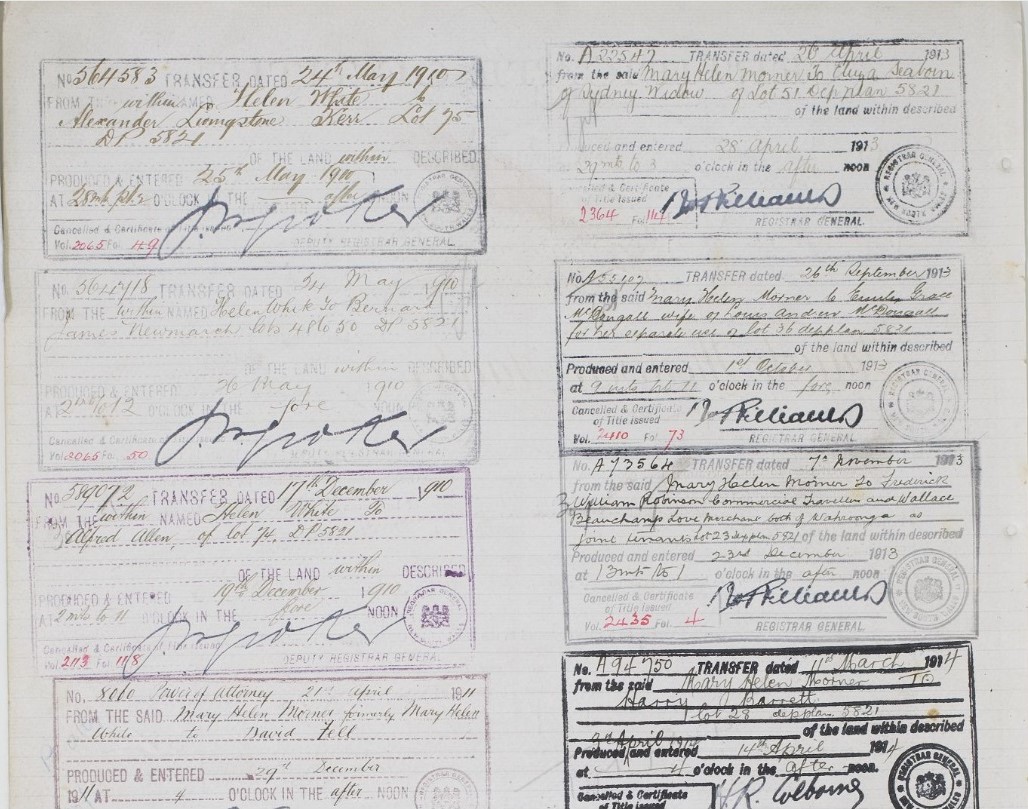 No. 564583 TRANSFER DATED 24th May 1910
FROM THE within NAMED Helen White to
Alexander Livingstone Kerr Lot 75
DP 5821
OF THE LAND within DESCRIBED
PRODUCED & ENTERED 25th May 1910
AT 28 mts pt 2 O'CLOCK IN THE after
Cancelled & Certificate of Title issued
Vol. 2065 Fol. 49 DEPUTY REGISTRAR GENERAL
TRANSFER DATED 24 May 1910
FROM THE within NAMED Helen White To
James Newmarch lots 48 to 50 DP 5821
OF THE LAND within DESCRIBED
PRODUCED & ENTERED 26 May 1910
AT O'CLOCK IN THE fore NOON
Cancelled & Certificate of Title issued
Vol. 2065 Fol. 50
No. 589072 TRANSFER DATED 17th December 1910
FROM THE within NAMED Helen White To
Alfred Allen, of lot 74, DP 5821
OF THE LAND within DESCRIBED
PRODUCED & ENTERED 19th December 1910
AT 2 mts to 11 O'CLOCK IN THE fore NOON
Cancelled & Certificate of Title issued
Vol. 2113 Fol. 118 DEPUTY REGISTRAR GENERAL
No. 8060 Power of Attorney 21st April 1911
FROM THE SAID Mary Helen Morner formerly Mary Helen
White to David Fell
PRODUCED & ENTERED 29th December
1911 AT 4 O'CLOCK IN THE after NOON
No. A22547 TRANSFER dated 26 April 1913
from the said Mary Helen Morner To Eliza Seaborn
of Sydney Widow of Lot 51 Dep plan 5821
of the land within described
Produced and entered 28 April 1913
at 27 mts to 3 o'clock in the after noon
Cancelled & Certificate
2364 Fol. REGISTRAR GENERAL
TRANSFER dated 26th September 1913
from the said Mary Helen Morner to Emily Grace
McDougall wife of Louis Andrew McDougall
for her separate use of lot 36 dep plan 5821
of the land within described
Produced and entered 1st October 1913
at 9 mts to 11 o'clock in the fore noon
Cancelled & Certificate
of Title issued
Vol. 2410 Fol. 73 REGISTRAR GENERAL
No. A73564 TRANSFER dated 7th November 1913
from the said Mary Helen Morner To Frederick
William Robinson Commercial Traveller and Wallace
Beauchamp Love Merchant both of Wahroonga as
joint tenants lot 23 dep plan 5821 of the land within described
Produced and entered 23rd December 1913
at 13 mts to 1 o'clock in the after noon
Cancelled & Certificate
of Title issued
Vol. 2435 Fol. 4 REGISTRAR GENERAL
No. A94750 TRANSFER dated 11th March 1914
from the said Mary Helen Morner To
Harry Barrett
lot 28 dep plan 5821
of the land within described
Produced and entered 14th April 1914
at 4 o'clock in the after noon
Cancelled & Certificate
of Title issued